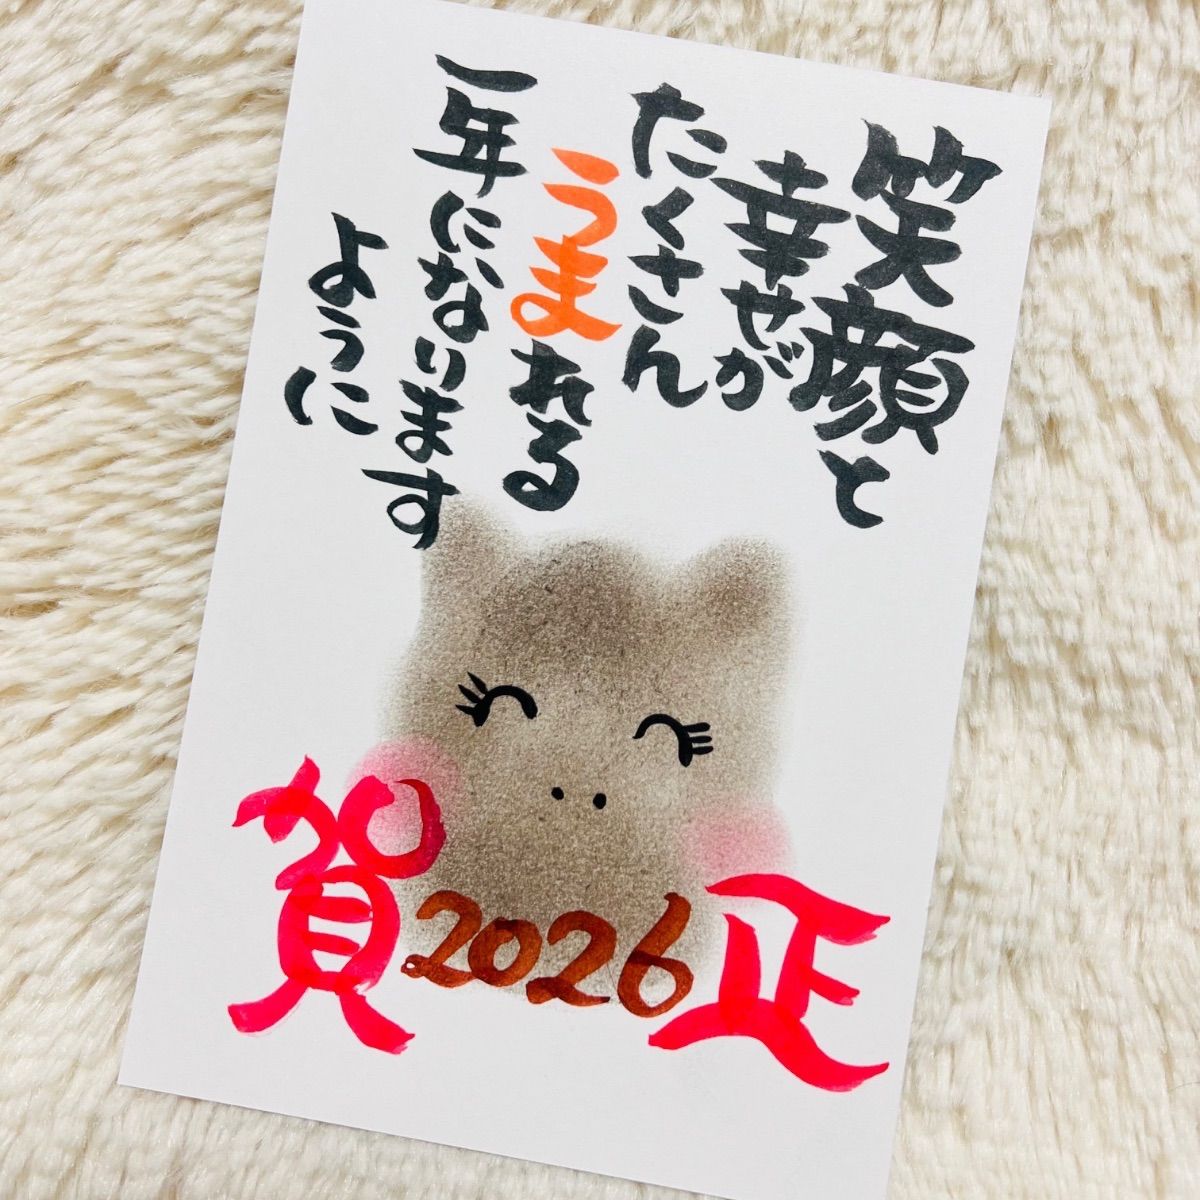 笑顔と
幸せが
たくさん
うまれる
一年になります
ように
賀
2026
正